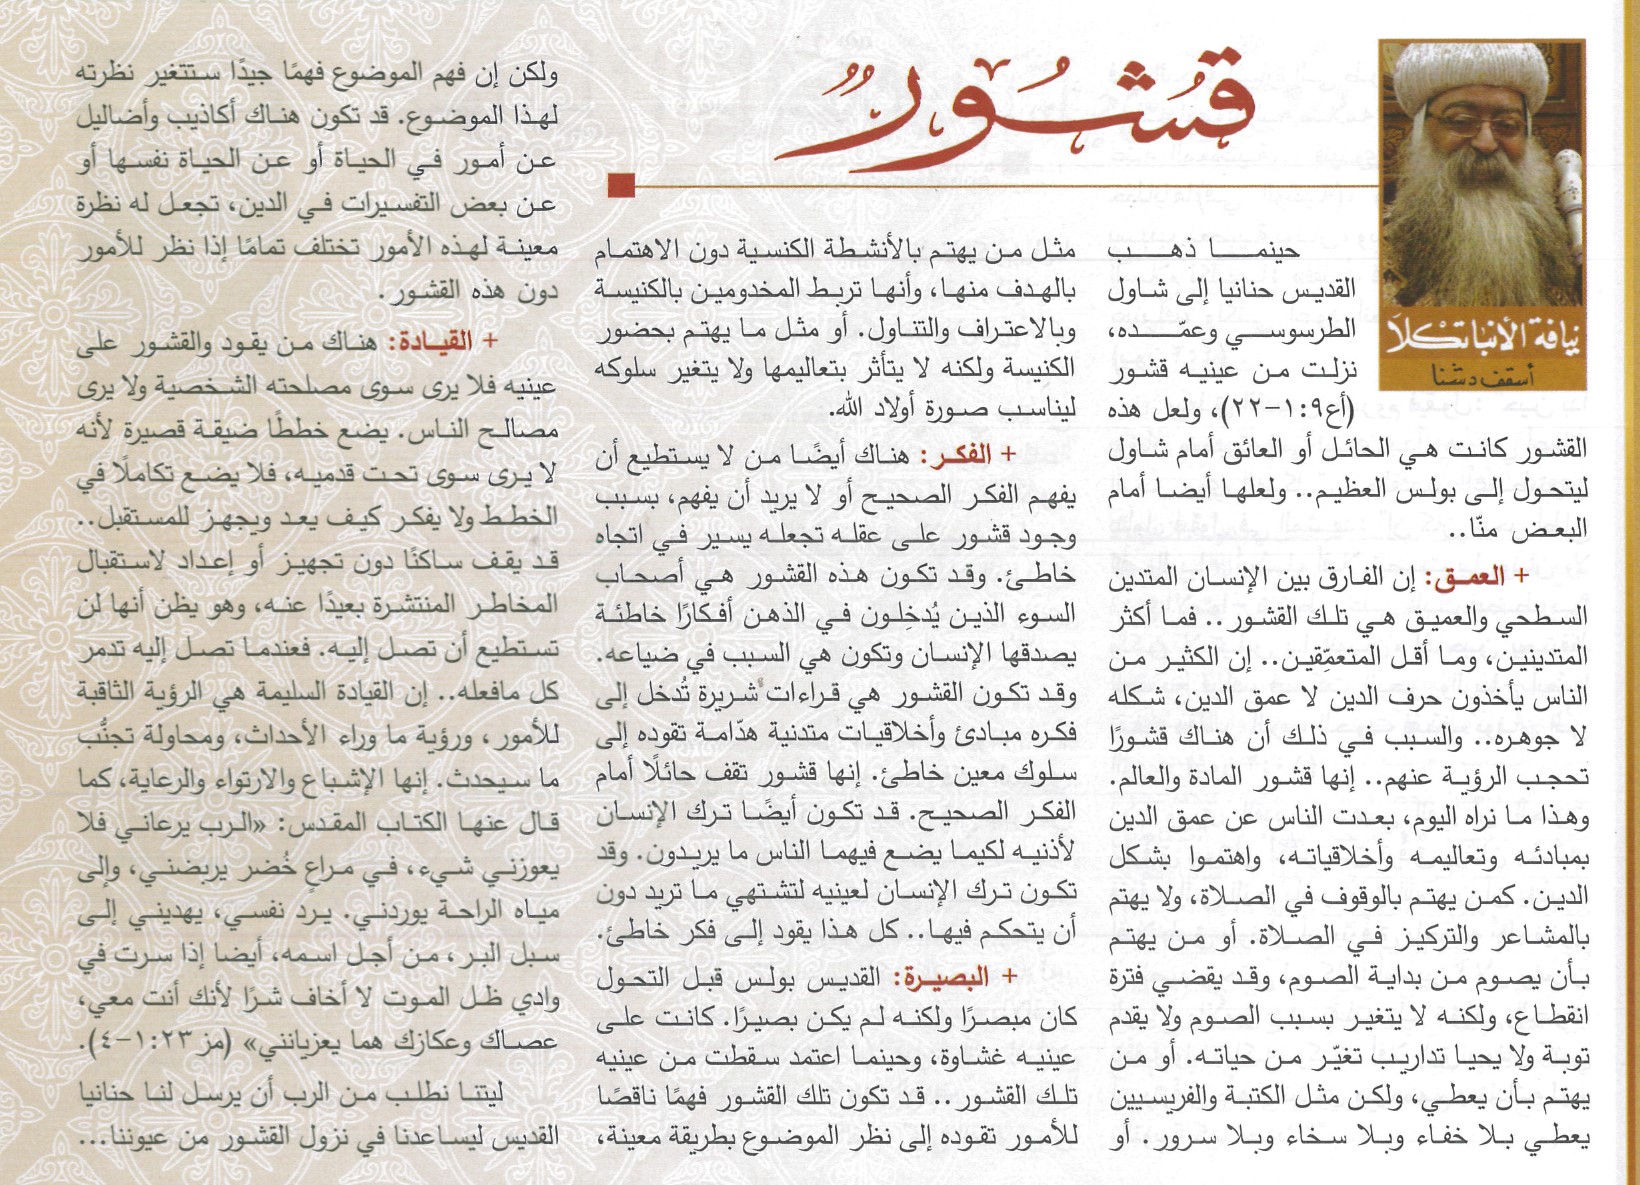 قشور
نيافة الأنبا تكلا
أسقف دشنا
حينما ذهب
القديس حنانيا إلى شاول
الطرسوسي وعمّده،
نزلت من عينيه قشور
(أع٩:١-٢٢)، ولعل هذه
القشور كانت هي الحائل أو العائق أمام شاول
ليتحول إلى بولس العظيم.. ولعلها أيضا أمام
البعض منّا..
+ العمق: إن الفارق بين الإنسان المتدين
السطحي والعميق هي تلك القشور.. فما أكثر
المتدينين، وما أقل المتعمِّقين.. إن الكثير من
الناس يأخذون حرف الدين لا عمق الدين، شكله
لا جوهره.. والسبب في ذلك أن هناك قشورًا
تحجب الرؤية عنهم.. إنها قشور المادة والعالم.
وهذا ما نراه اليوم، بعدت الناس عن عمق الدين
بمبادئه وتعاليمه وأخلاقياته، واهتموا بشكل
الدين. كمن يهتم بالوقوف في الصلاة، ولا يهتم
بالمشاعر والتركيز في الصلاة. أو من يهتم
بأن يصوم من بداية الصوم، وقد يقضي فترة
انقطاع، ولكنه لا يتغير بسبب الصوم ولا يقدم
توبة ولا يحيا تداريب تغيّر من حياته. أو من
يهتم بأن يعطي، ولكن مثل الكتبة والفريسيين
يعطي بلا خفاء وبلا سخاء وبلا سرور. أو
مثل من يهتم بالأنشطة الكنسية دون الاهتمام
بالهدف منها، وأنها تربط المخدومين بالكنيسة
وبالاعتراف والتناول. أو مثل ما يهتم بحضور
الكنيسة ولكنه لا يتأثر بتعاليمها ولا يتغير سلوكه
ليناسب صورة أولاد الله.
+ الفكر: هناك أيضًا من لا يستطيع أن
يفهم الفكر الصحيح أو لا يريد أن يفهم، بسبب
وجود قشور على عقله تجعله يسير في اتجاه
خاطئ. وقد تكون هذه القشور هي أصحاب
السوء الذين يُدخِلون في الذهن أفكارًا خاطئة
يصدقها الإنسان وتكون هي السبب في ضياعه.
وقد تكون القشور هي قراءات شريرة تُدخل إلى
فكره مبادئ وأخلاقيات متدنية هدّامة تقوده إلى
سلوك معين خاطئ. إنها قشور تقف حائلًا أمام
الفكر الصحيح. قد تكون أيضًا ترك الإنسان
لأذنيه لكيما يضع فيهما الناس ما يريدون. وقد
تكون ترك الإنسان لعينيه لتشتهي ما تريد دون
أن يتحكم فيها.. كل هذا يقود إلى فكر خاطئ.
+ البصيرة: القديس بولس قبل التحول
كان مبصرًا ولكنه لم يكن بصيرًا. كانت على
عينيه غشاوة، وحينما اعتمد سقطت من عينيه
تلك القشور.. قد تكون تلك القشور فهمًا ناقصًا
للأمور تقوده إلى نظر الموضوع بطريقة معينة،
ولكن إن فهم الموضوع فهمًا جيدًا ستتغير نظرته
لهذا الموضوع. قد تكون هناك أكاذيب وأضاليل
عن أمور في الحياة أو عن الحياة نفسها أو
عن بعض التفسيرات في الدين، تجعل له نظرة
معينة لهذه الأمور تختلف تمامًا إذا نظر للأمور
دون هذه القشور.
+ القيادة: هناك من يقود والقشور على
عينيه فلا يرى سوى مصلحته الشخصية ولا يرى
مصالح الناس. يضع خططًا ضيقة قصيرة لأنه
لا يرى سوى تحت قدميه، فلا يضع تكاملًا في
الخطط ولا يفكر كيف يعد ويجهز للمستقبل..
قد يقف ساكنًا دون تجهيز أو إعداد لاستقبال
المخاطر المنتشرة بعيدًا عنه، وهو يظن أنها لن
تستطيع أن تصل إليه. فعندما تصل إليه تدمر
كل مافعله.. إن القيادة السليمة هي الرؤية الثاقبة
للأمور، ورؤية ما وراء الأحداث، ومحاولة تجنُّب
ما سيحدث. إنها الإشباع والارتواء والرعاية، كما
قال عنها الكتاب المقدس: «الرب يرعاني فلا
يعوزني شيء، في مراعٍ خُضر يربضني، وإلى
مياه الراحة يوردني. يرد نفسي، يهديني إلى
سبل البر، من أجل اسمه، أيضا إذا سرت في
وادي ظل الموت لا أخاف شرًا لأنك أنت معي،
عصاك وعكازك هما يعزيانني» (مز٢٣:١-٤).
ليتنا نطلب من الرب أن يرسل لنا حنانيا
القديس ليساعدنا في نزول القشور من عيوننا...